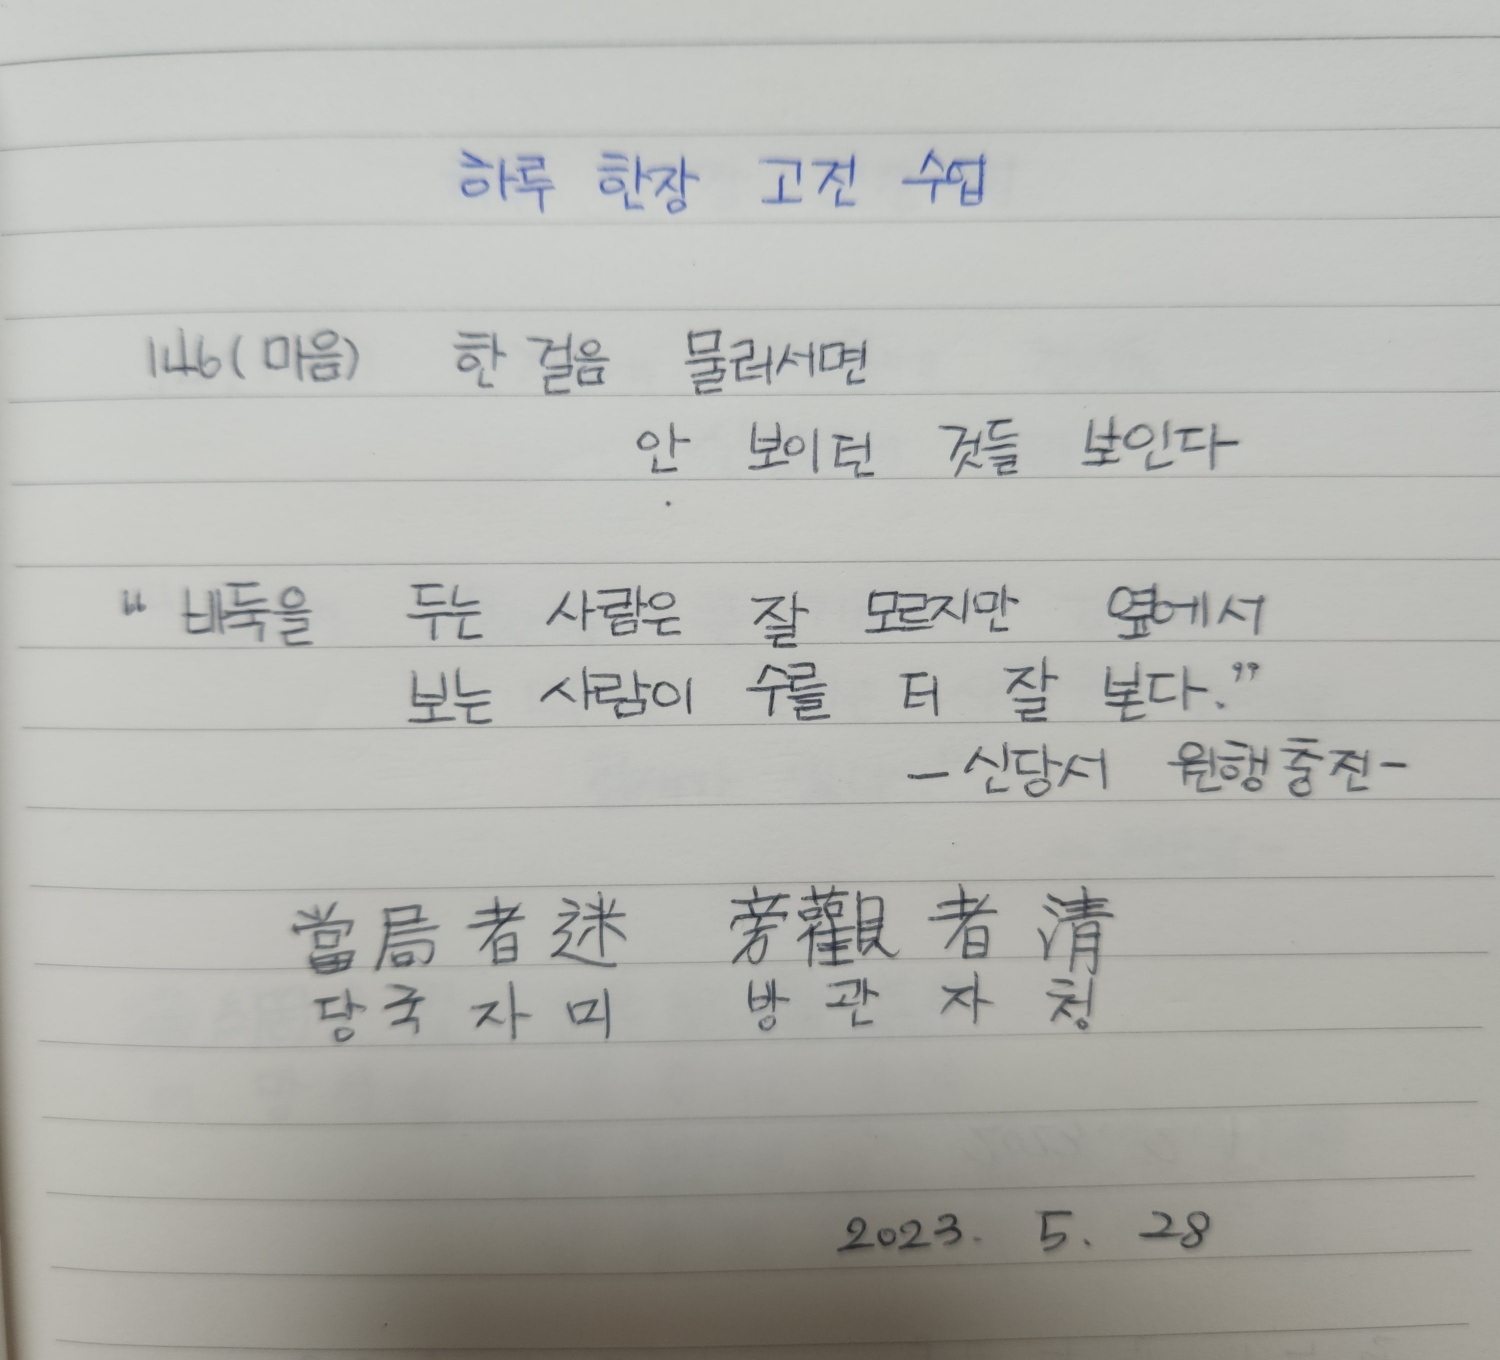 하루 한장 고전 수업
146(마음) 한 걸음 물러서면
안 보이던 것들 보인다
“바둑을 두는 사람은 잘 모르지만 옆에서
보는 사람이 수를 더 잘 본다.”
-신당서 원행충전-
當局者迷 旁觀者清
당국자미 방관자청
2023. 5. 28